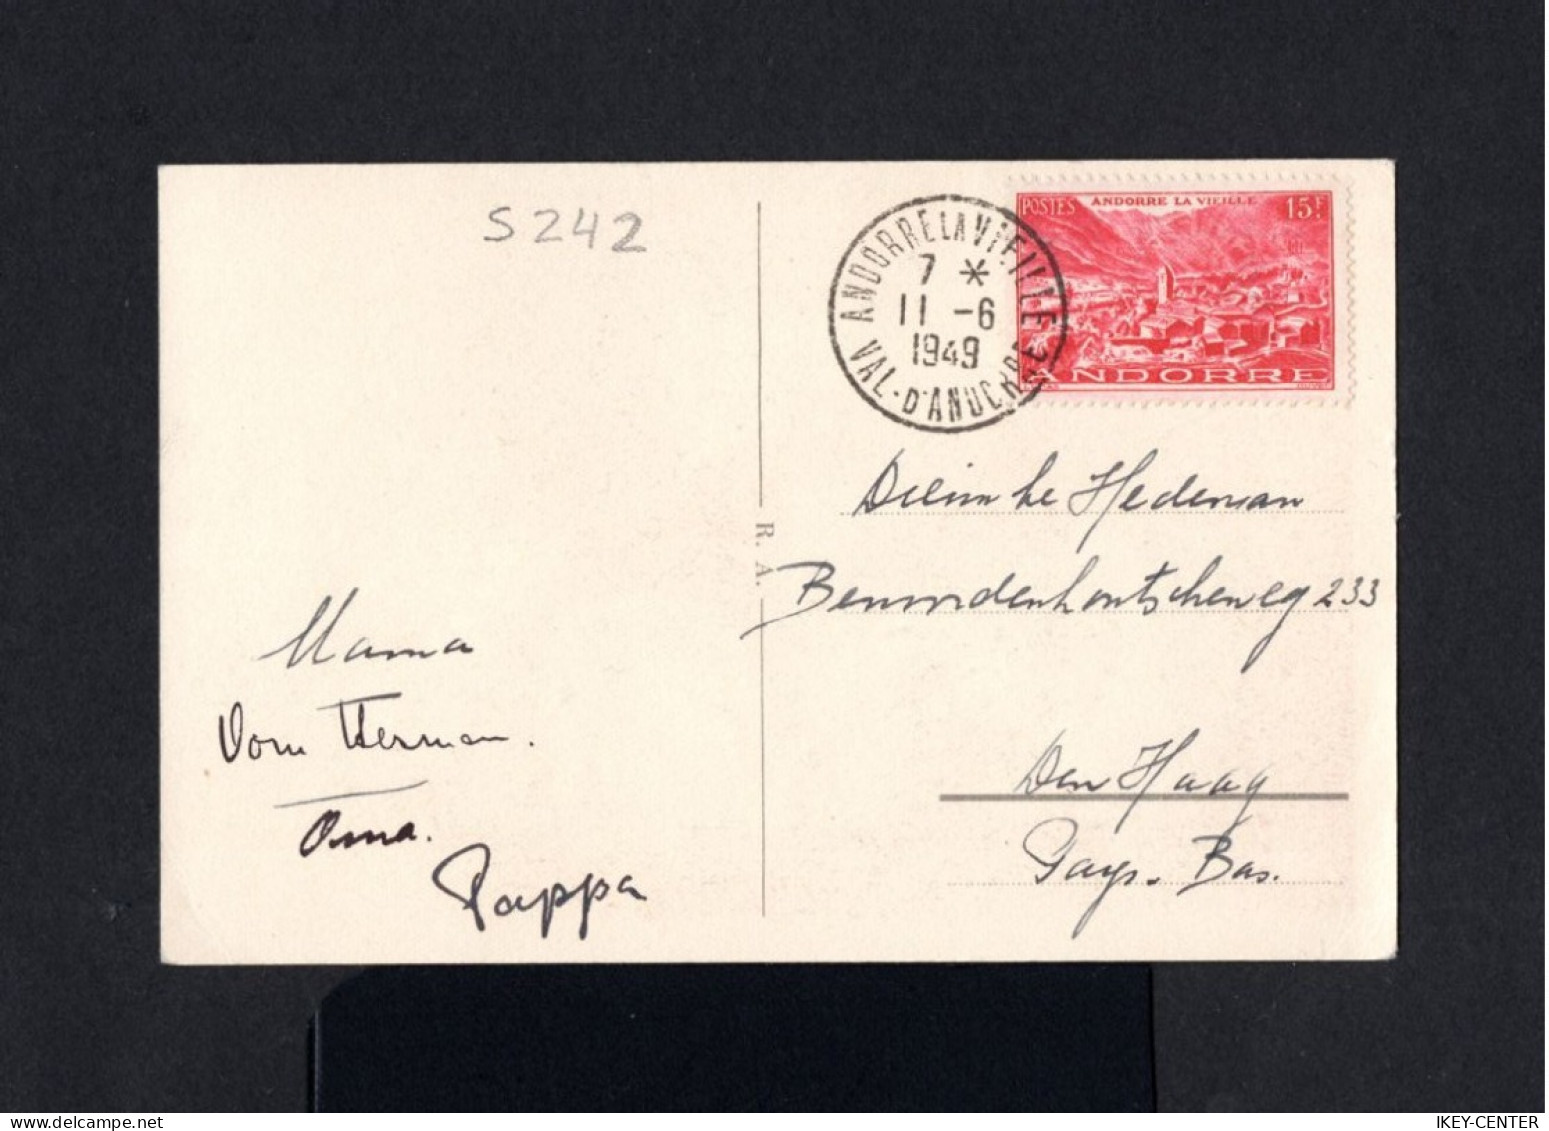 S242
POSTES ANDORRE LA VIEILLE 15F
ANDORRE
ANDORRE LA VIEILLE
7 *
11 -6
1949
VAL-D'ANDORRE
R. A.
Hedeman
Benoordenhoutscheweg 233
Den Haag
Pays-Bas.
Mama
Oom Herman.
Oma.
Pappa
IKEY-CENTER